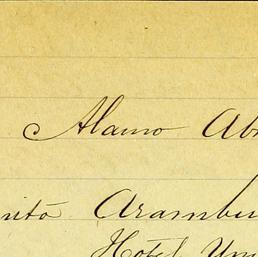 Alamo Ab
nito Arambu
Hotel Un